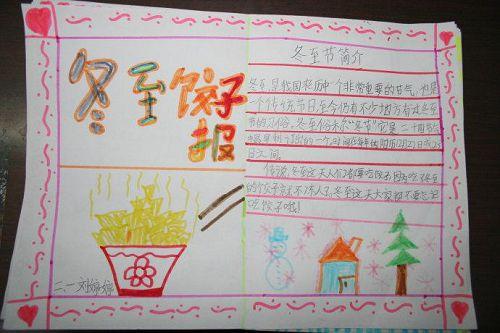 冬至饺子
报
二、一 刘
冬至节简介
冬至,是我国农历中一个非常重要的节气,也是
一个传统节日,至今仍有不少地方有过冬至
节的习俗。冬至俗称“冬节”它是二十四节气
中最早制订出的一个,时间在每年的阳历12月21日或23
日之间。
传说,冬至这天人们都得吃饺子,因为吃冬至
的饺子就不冻人了,冬至这天大家都不要忘记
吃饺子哦!